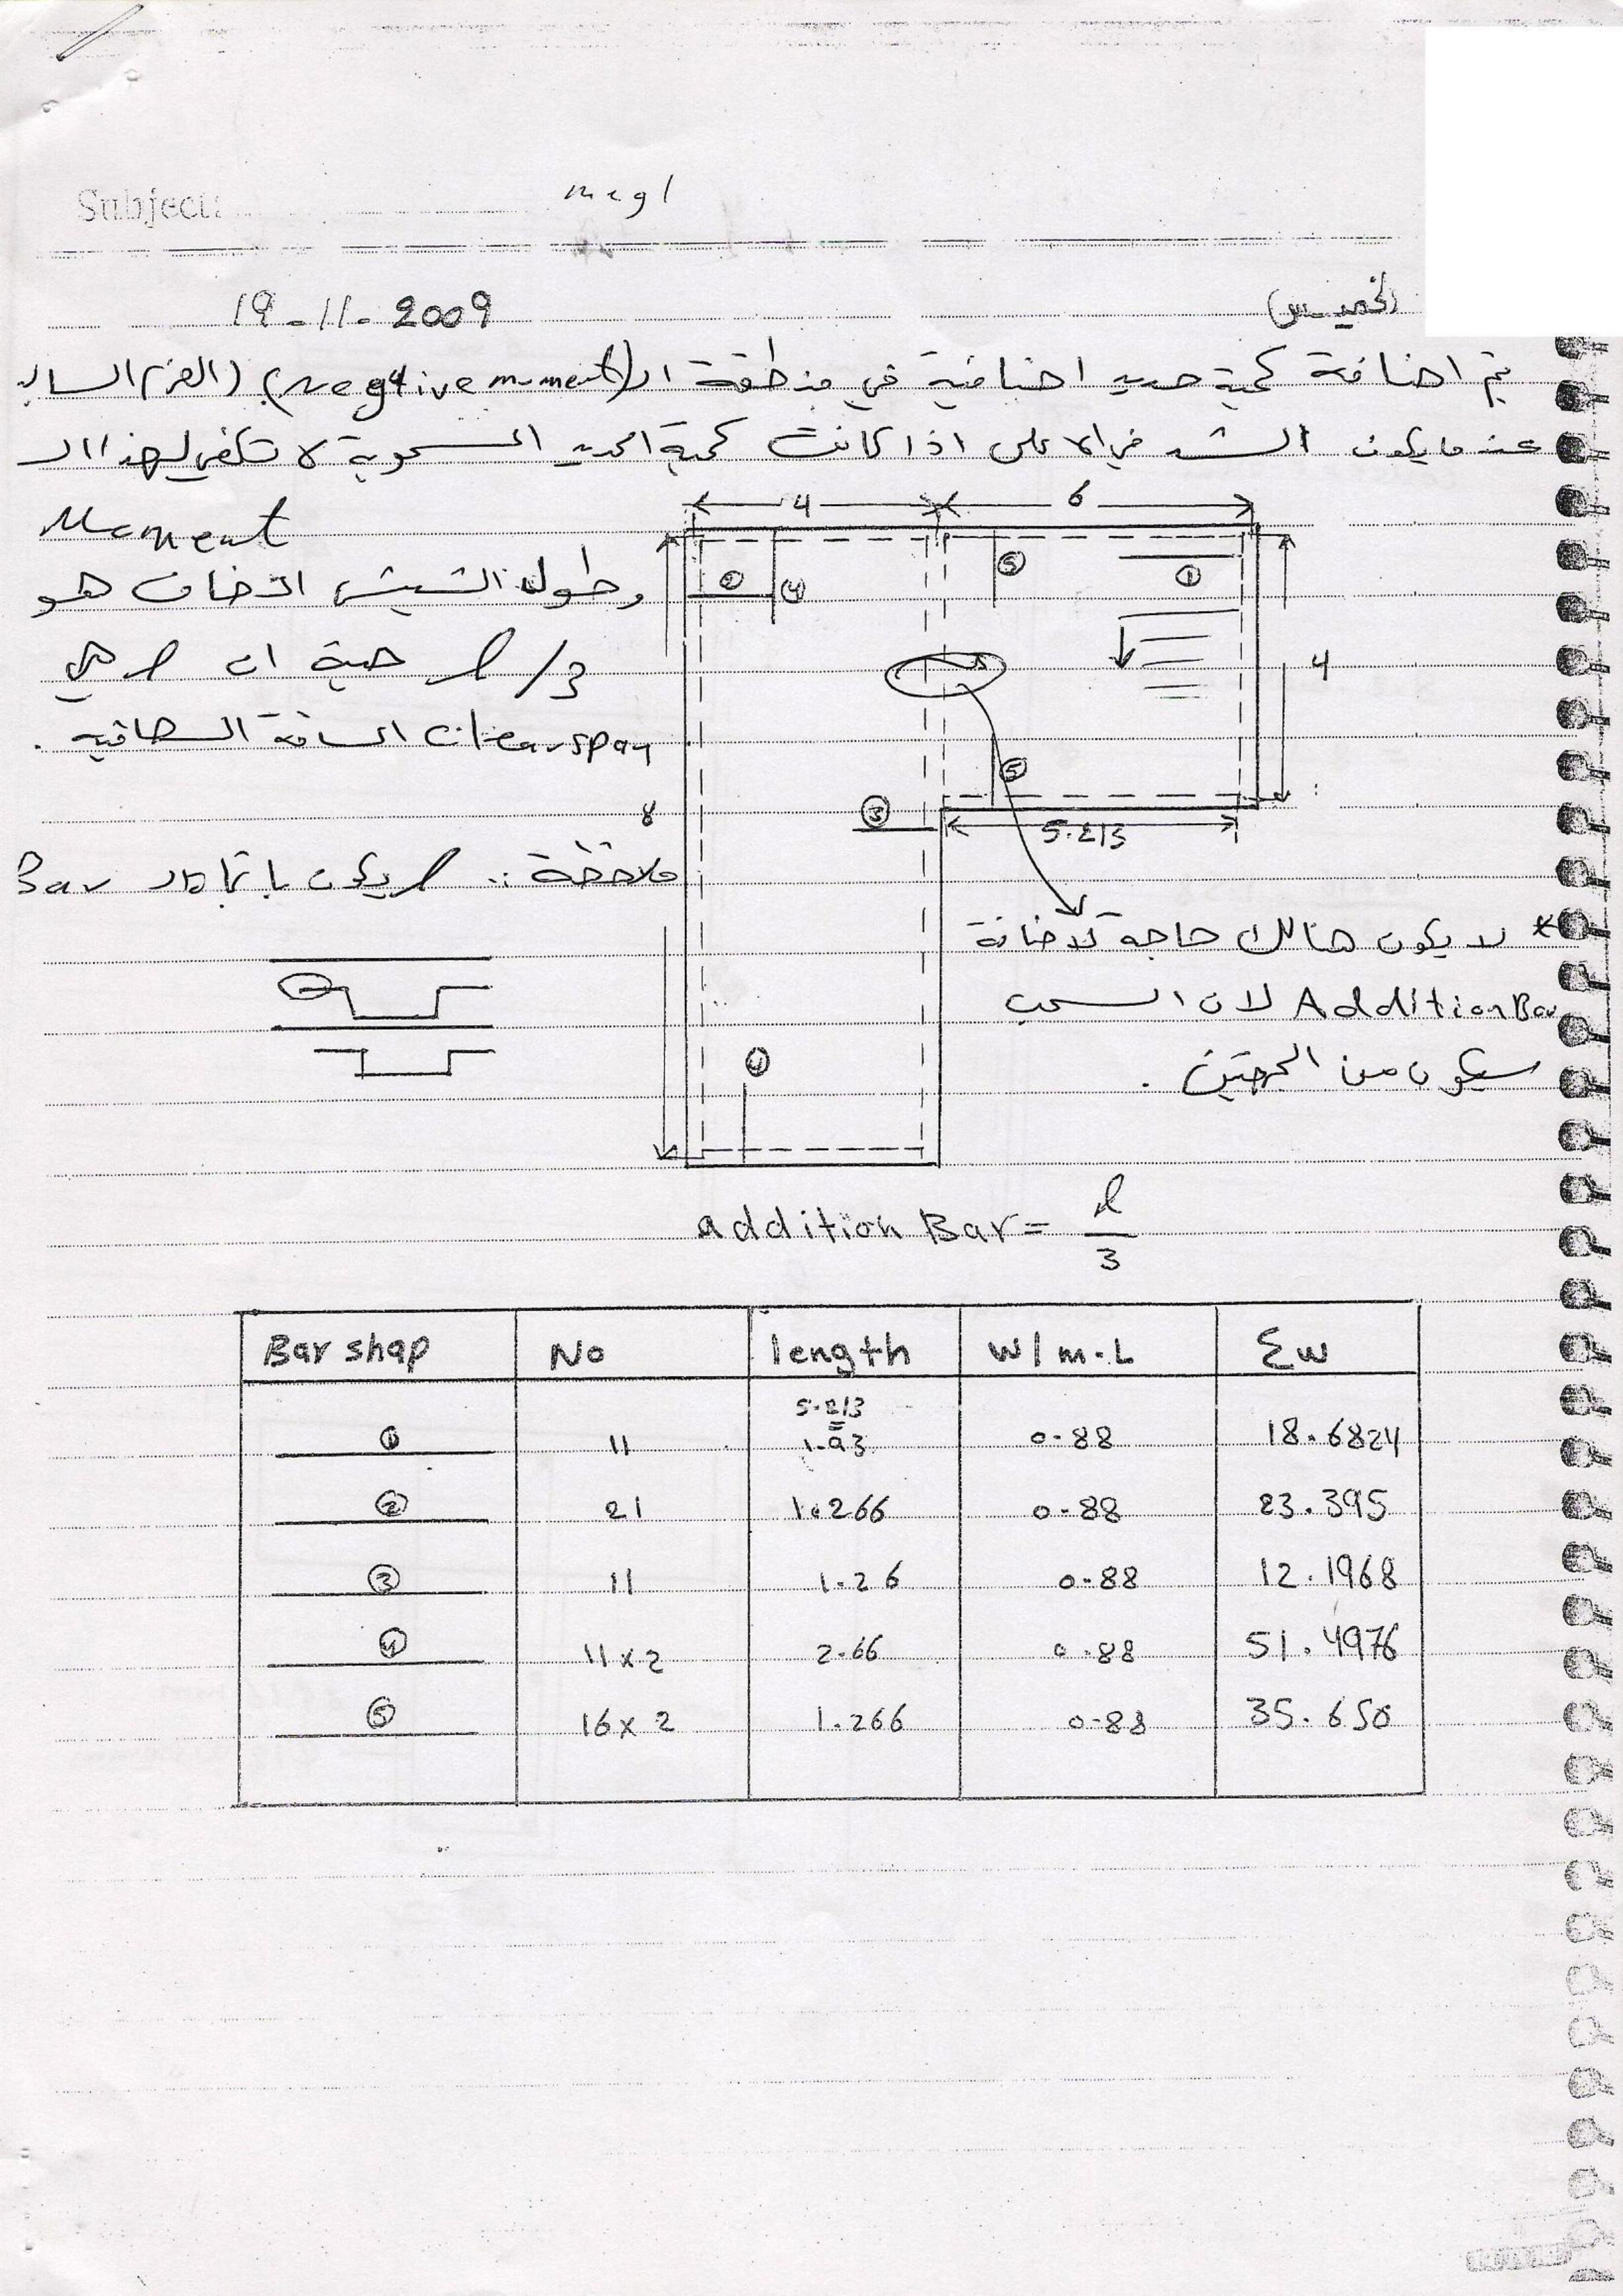 Subject:
الخميس
19-11-2009
تم اضافة كمية حديد اضافية في منطقة الـ (Negative moment) (العزم السالب
عندما يكون الشد في الاعلى اذا كانت كمية الحديد المسحوبة لا تكفي لهذا الـ
Moment
وطول الشيش المضاف هو
ℓ/3 حيث ان ℓ هي
clear span المسافة الصافية.
ملاحظة: ℓ يكون باتجاه الـ Bar
4
6
②
④
⑤
①
4
8
⑤
③
5.8/3
④
* لا يكون هنالك حاجة لاضافة
Addition Bar لان السحب
سيكون من الجهتين.
addition Bar = ℓ/3
Bar shap No length W/m.L Σw
① 11 5.8/3 = 1.93 0.88 18.6824
② 21 1.266 0.88 23.395
③ 11 1.26 0.88 12.1968
④ 11x2 2.66 0.88 51.4976
⑤ 16x2 1.266 0.88 35.650